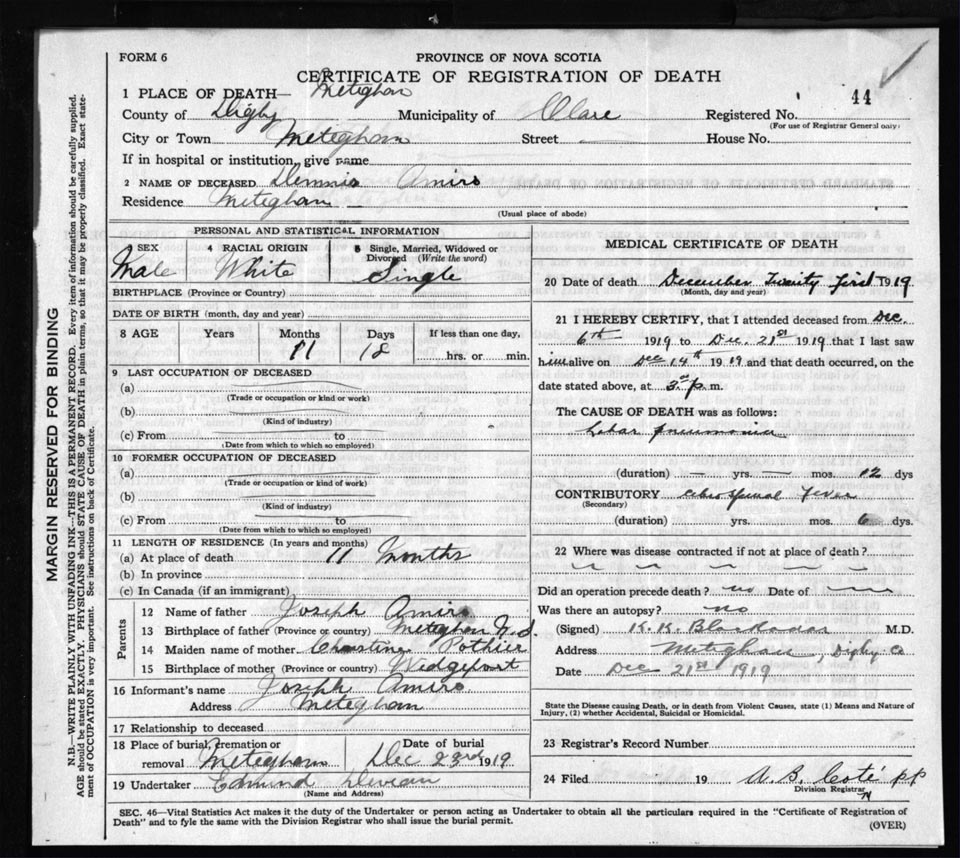 FORM 6
PROVINCE OF NOVA SCOTIA
CERTIFICATE OF REGISTRATION OF DEATH
44
1 PLACE OF DEATH— Meteghan
County of Digby Municipality of Clare Registered No.
(For use of Registrar General only)
City or Town Meteghan Street House No.
If in hospital or institution, give name
2 NAME OF DECEASED Dennis Amiro
Residence Meteghan
(Usual place of abode)
PERSONAL AND STATISTICAL INFORMATION
3 SEX 4 RACIAL ORIGIN 5 Single, Married, Widowed or Divorced (Write the word)
Male White Single
BIRTHPLACE (Province or Country)
DATE OF BIRTH (month, day and year)
8 AGE Years Months Days If less than one day,
11 18 hrs. or min.
9 LAST OCCUPATION OF DECEASED
(a)
(Trade or occupation or kind or work)
(b)
(Kind of industry)
(c) From to
(Date from which to which so employed)
10 FORMER OCCUPATION OF DECEASED
(a)
(Trade or occupation or kind of work)
(b)
(Kind of industry)
(c) From to
(Date from which to which so employed)
11 LENGTH OF RESIDENCE (In years and months)
(a) At place of death 11 Months
(b) In province
(c) In Canada (if an immigrant)
Parents
12 Name of father Joseph Amiro
13 Birthplace of father (Province or country) Meteghan N.S.
14 Maiden name of mother Christine Pothier
15 Birthplace of mother (Province or country) Wedgeport
16 Informant's name Joseph Amiro
Address Meteghan
17 Relationship to deceased
18 Place of burial, cremation or removal Meteghan Date of burial Dec 23rd 1919
19 Undertaker Edmund Deveau
(Name and Address)
MEDICAL CERTIFICATE OF DEATH
20 Date of death December Twenty First 1919
(Month, day and year)
21 I HEREBY CERTIFY, that I attended deceased from Dec.
6th 1919 to Dec. 21st 1919 that I last saw
him alive on Dec 14th 1919 and that death occurred, on the
date stated above, at 3 p. m.
The CAUSE OF DEATH was as follows:
Lobar pneumonia
(duration) yrs. mos. 12 dys
CONTRIBUTORY Fever
(Secondary)
(duration) yrs. mos. 6 dys.
22 Where was disease contracted if not at place of death?
Did an operation precede death? no Date of
Was there an autopsy? no
(Signed) M.D.
Address Meteghan, Digby Co
Date Dec 21st 1919
State the Disease causing Death, or in death from Violent Causes, state (1) Means and Nature of
Injury, (2) whether Accidental, Suicidal or Homicidal.
23 Registrar's Record Number
24 Filed 19 A. B. Coté pp
Division Registrar
SEC. 46—Vital Statistics Act makes it the duty of the Undertaker or person acting as Undertaker to obtain all the particulars required in the "Certificate of Registration of
Death" and to fyle the same with the Division Registrar who shall issue the burial permit.
(OVER)
MARGIN RESERVED FOR BINDING
N.B.—WRITE PLAINLY WITH UNFADING INK—THIS IS A PERMANENT RECORD. Every item of information should be carefully supplied.
AGE should be stated EXACTLY. PHYSICIANS should STATE CAUSE OF DEATH in plain terms, so that it may be properly classified. Exact state-
ment of OCCUPATION is very important. See instructions on back of Certificate.